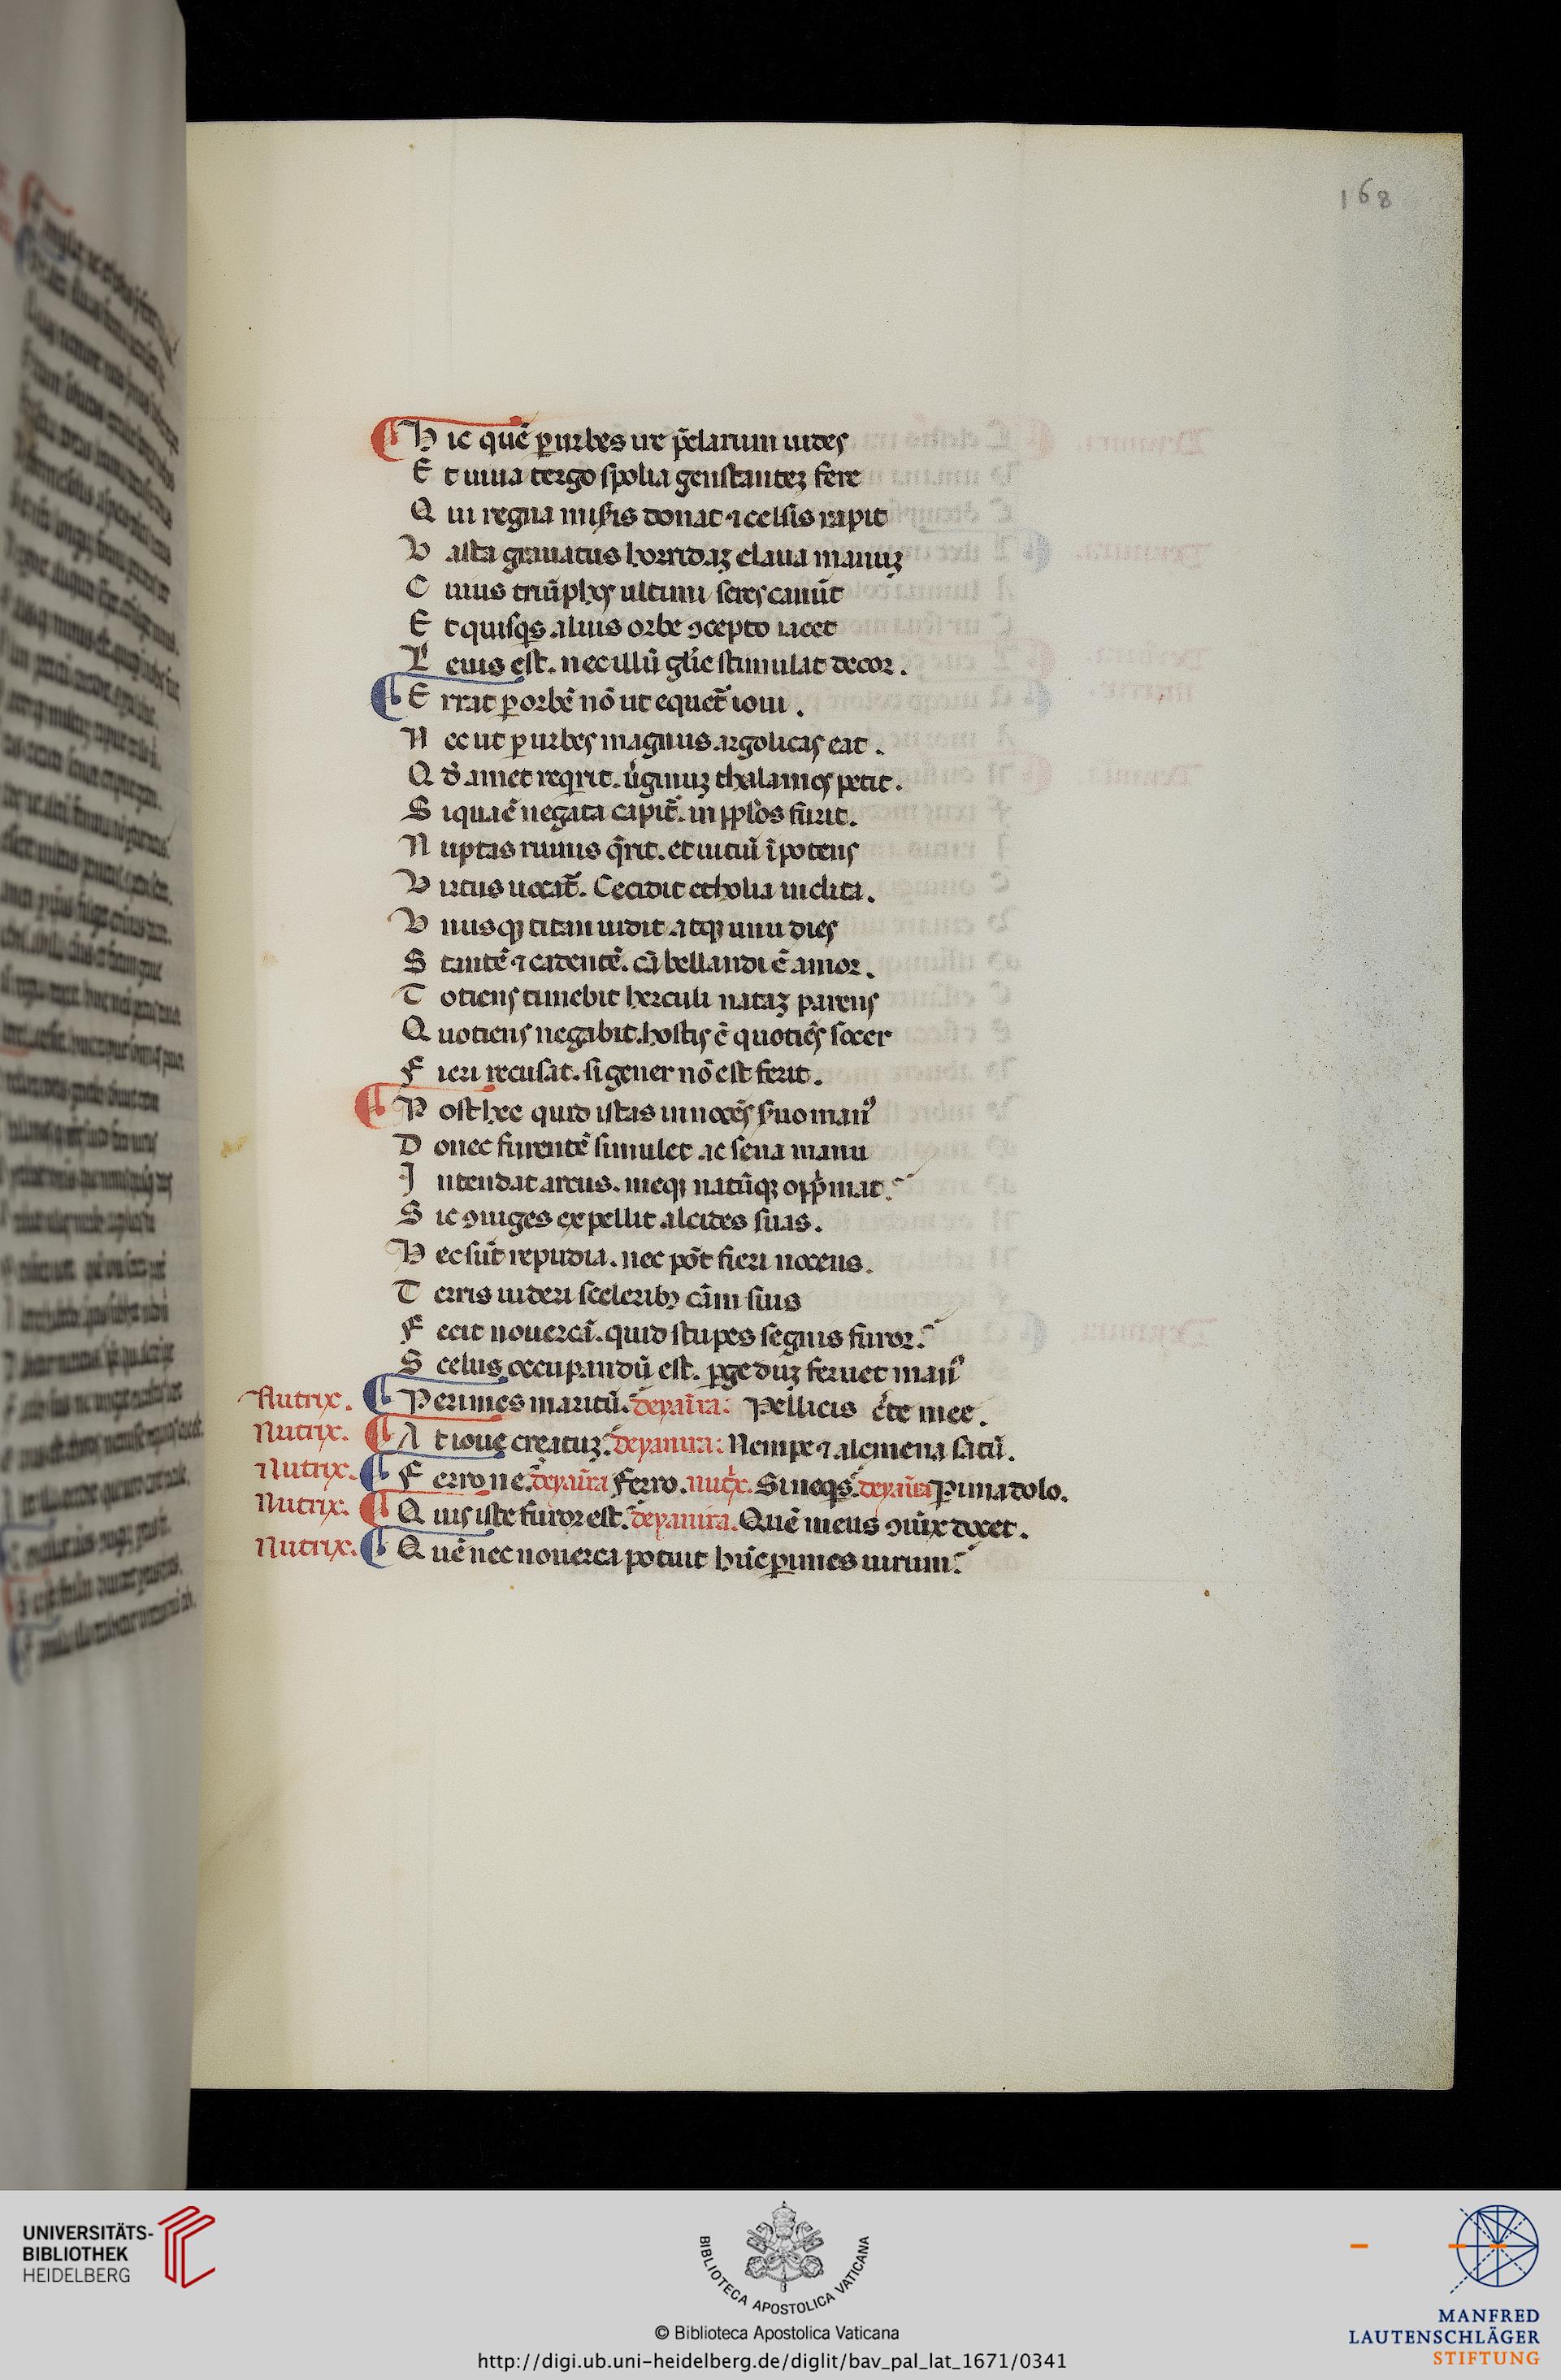 168
H ic quē ꝑ urbes ire p̄clarum uides
E t uiua tergo spolia gestantez fere
Q ui regna miẜis donat ⁊ celsis rapit
V asta grauatus horridaz claua manuz
C uius triūphos ultimi seres canūt
E t quisq̄s alius orbe ꝯcepto iacet
L euis est. nec illū glīe stimulat decor.
E rrat ꝑ orbē nō ut equet̄ ioui.
N ec ut ꝑ urbes magnus argolicas eat.
Q d̄ amet reqͥrit. ūginuz thalamos petit.
S i qua ē negata capit̄. in pplōs furit.
N uptas ruinis q̄rit. et uitiū īpotens
V irtus uocat̄. Cecidit etholia inclita.
V nusqꝫ titan uidit atqꝫ unu dies
S tantē ⁊ cadentē. cā bellandi ē amor.
T otiens timebit herculi nataz parens
Q uotiens negabit. hostis ē quotiēs socer
F ieri recusat. si gener nō est ferit.
P ost hec quid istas innocēs s̄uo manꝰ
D onec furentē simulet ac seua manu
I ntendat arcus. meqꝫ natūqꝫ opp̄mat.
S ic ꝯiuges expellit alcides suas.
H ec sūt repudia. nec pōt fieri nocens.
T erris uideri sceleribꝫ cām suis
F ecit nouercā. quid stupes segnis furor.
S celus occupandū est. ꝑge duz feruet manꝰ
Nutrix. P erimes maritū. deyāira: Pellicis c̄te mee.
Nutrix. A t ioue creatuz. deyanira: Nempe ⁊ alcmena satū.
Nutrix. F erro ne. deyāira Ferro. nutͥx. Si neqͥs. deyāira ꝑimā dolo.
Nutrix. Q uis iste furor est. deyanira. Quē meus ꝯiūx docet.
Nutrix. Q uē nec nouerca potuit hūc ꝑimes uirum.
UNIVERSITÄTS-
BIBLIOTHEK
HEIDELBERG
BIBLIOTECA APOSTOLICA VATICANA
© Biblioteca Apostolica Vaticana
http://digi.ub.uni-heidelberg.de/diglit/bav_pal_lat_1671/0341
MANFRED
LAUTENSCHLÄGER
STIFTUNG